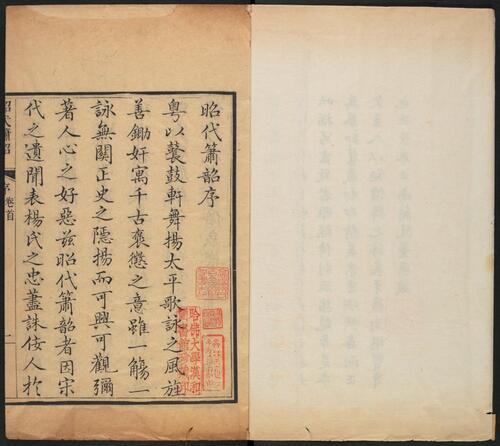 昭代簫韶序
粤以鼖鼓軒舞揚太平歌詠之風旌
善鋤奸寓千古褒懲之意雖一觴一
詠無關正史之隱揚而可興可觀彌
著人心之好惡兹昭代簫韶者因宋
代之遺聞表楊氏之忠藎誅佞人於
昭代簫韶
序 卷首
一
哈佛大學漢和
圖書館珍藏印